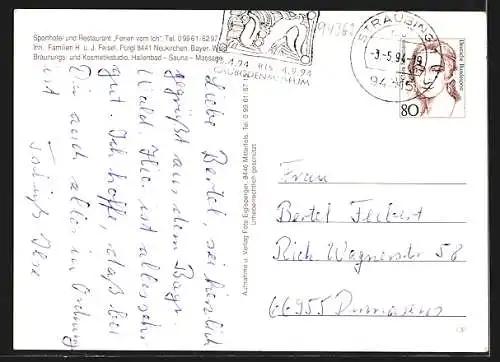 Sporthotel und Restaurant „Ferien vom Ich“, Tel. 0 99 61 / 62 97
Inh. Familien H. u. J. Feisel, Pürgl 8441 Neukirchen, Bayer. W
Bräunungs- und Kosmetikstudio, Hallenbad – Sauna – Massage
.4.94 BIS 4.9.94
GÄUBODENMUSEUM
94362
STRAUBING
-3.-5.94-19
94315
Deutsche Bundespost
80
Liebe Bertel, sei herzlich
gegrüßt aus dem Bayr.
Wald. Hier ist alles sehr
gut. Ich hoffe, daß bei
Dir auch alles in Ordnung
ist.
Aufnahme u. Verlag Foto Eiglsperger, 8446 Mitterfels, Tel. 0 99 61 / 87
Urheberrechtlich geschützt
Frau
Bertel
Rich. Wagnerstr 58
66955 Pirmasens